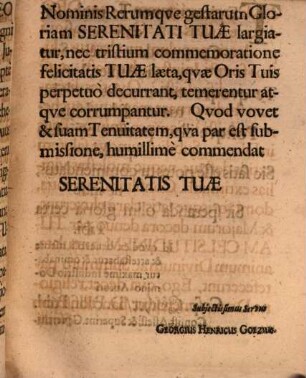 Nominis Rerumqve gestarum Glo-
riam SERENITATI TUÆ largia-
tur, nec tristium commemoratione
felicitatis TUÆ læta, qvæ Oris Tuis
perpetuò decurrant, temerentur at-
qve corrumpantur. Qvod vovet
& suam Tenuitatem, qva par est sub-
missione, humillimè commendat
SERENITATIS TUÆ
Subjectissimus Servus
GEORGIUS HENRICUS GOEZIUS.